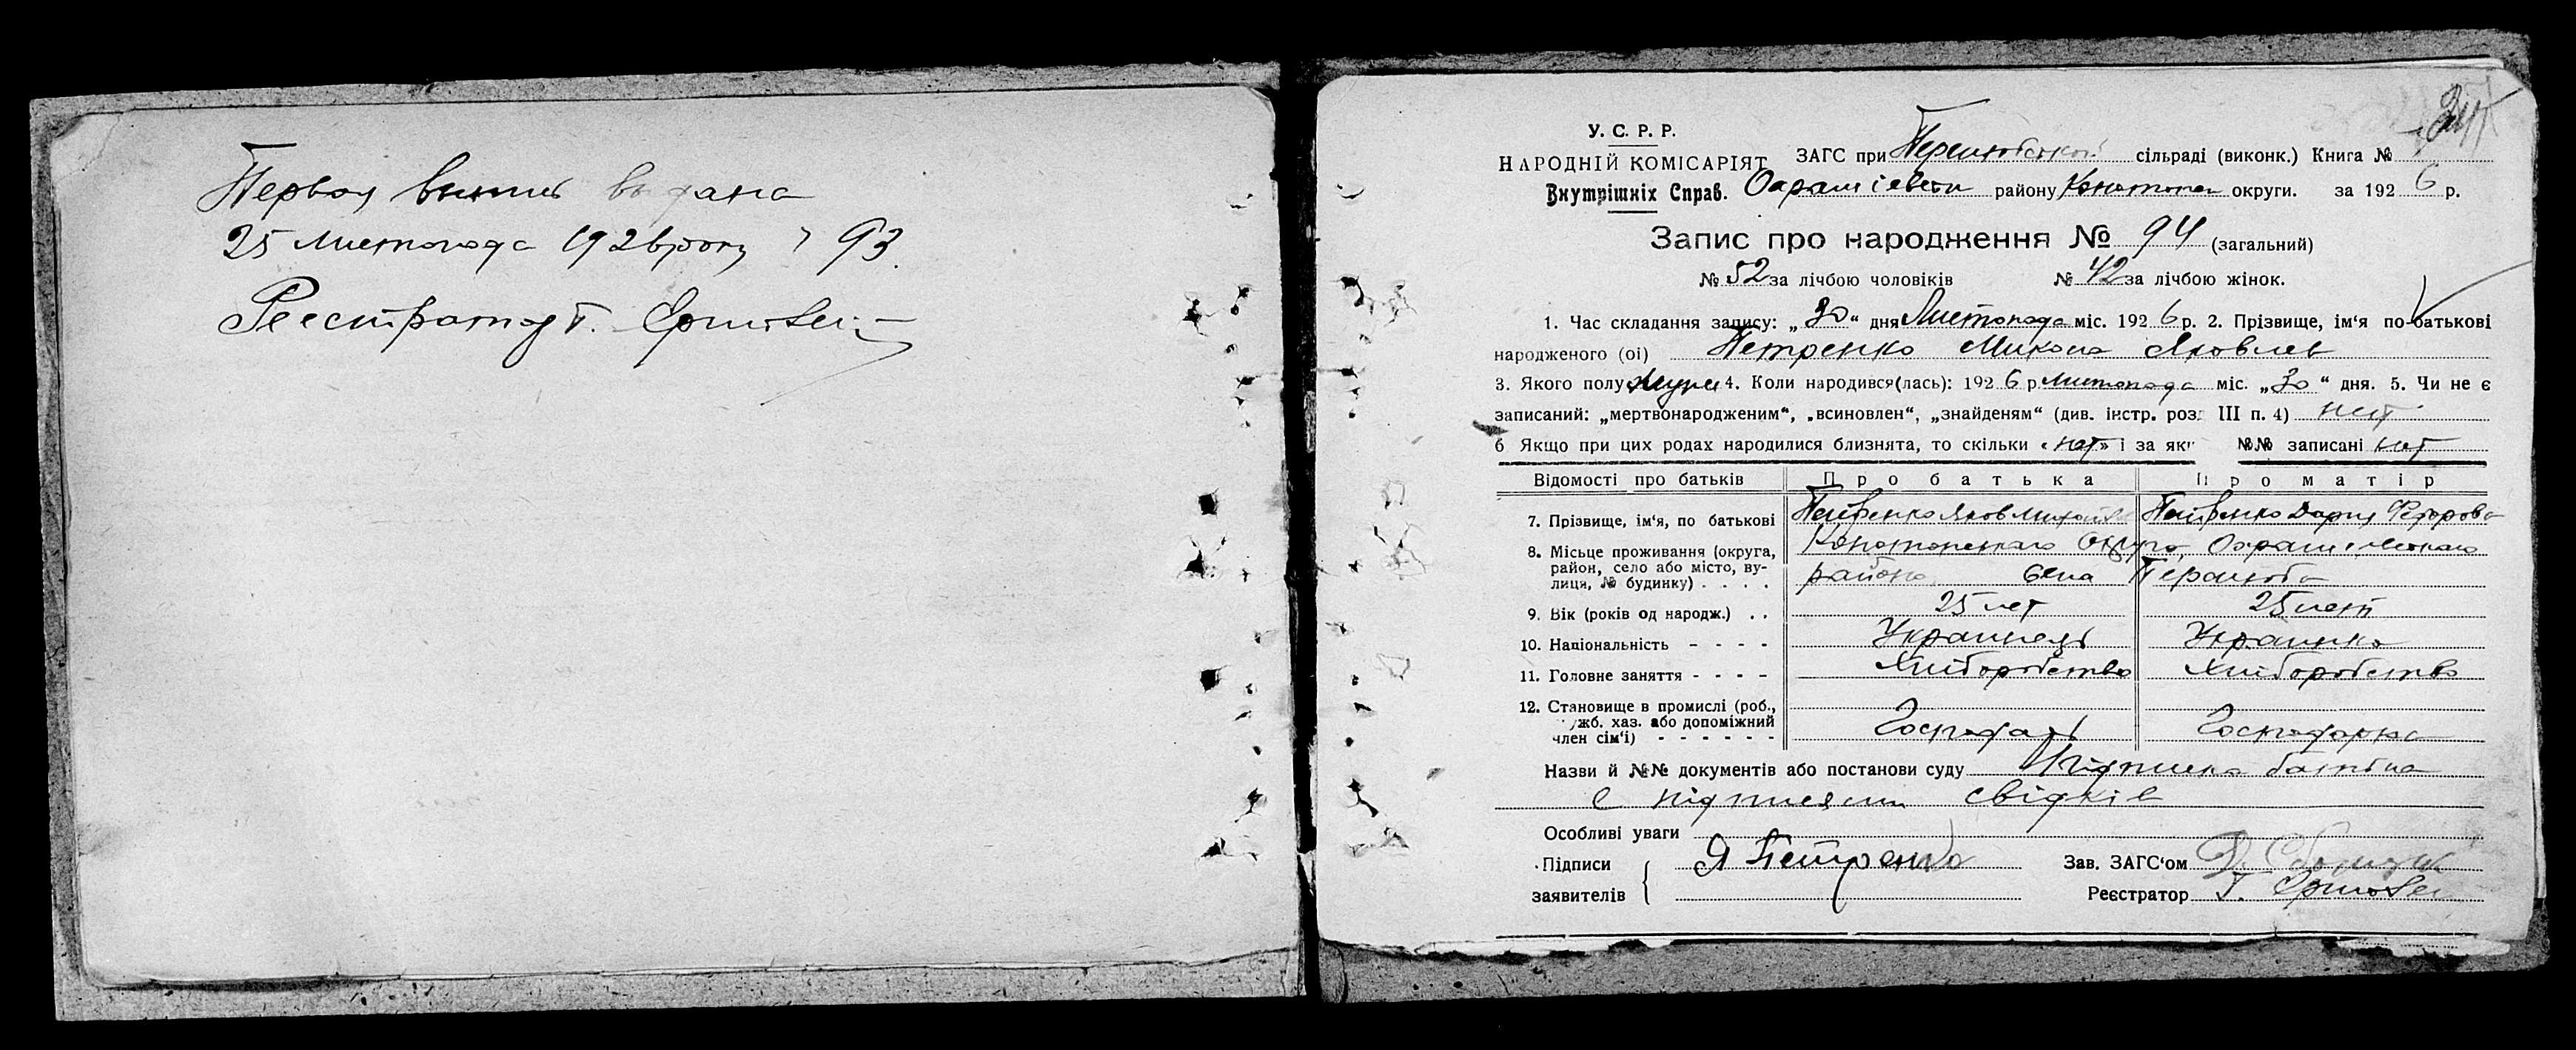 Первая выпись выдана
25 Листопада 1926 року № 93.
Реестратор Г.
У. С. Р. Р.
НАРОДНІЙ КОМІСАРІЯТ
Внутрішніх Справ.
ЗАГС при сільраді (виконк.) Книга №
району Конотопск округи. за 1926 р.
Запис про народження № 94 (загальний)
№ 52 за лічбою чоловіків № 42 за лічбою жінок.
1. Час складання запису: „30“ дня Листопада міс. 1926 р. 2. Прізвище, ім‘я по-батькові
народженого (ої) Петренко Микола Яковлев
3. Якого полу Муж 4. Коли народився(лась): 1926 р. Листопада міс. „30“ дня. 5. Чи не є
записаний: „мертвонародженим“, „всиновлен“, „знайденям“ (див. інстр. роз. III п. 4) нет
6 Якщо при цих родах народилися близнята, то скільки «нет» і за які №№ записані нет
Відомості про батьків Про батька Про матір
7. Прізвище, ім‘я, по батькові Петренко Яков Михайл Петренко Дария Федорова
8. Місьце проживання (округа, район, село або місто, вулиця, № будинку) Конотопского Округа,
района Села Перелюбы
9. Вік (років од народж.) 25 лет 25 лет
10. Національність Украинець Украинка
11. Головне заняття Хлиборобство Хлиборобство
12. Становище в промислі (роб., служб. хаз. або допоміжний член сім‘ї) Господарь Господарка
Назви й №№ документів або постанови суду Підписка батька
с підписями свідків
Особливі уваги
Підписи заявителів Я Петренко
Зав. ЗАГС‘ом
Реєстратор Г.